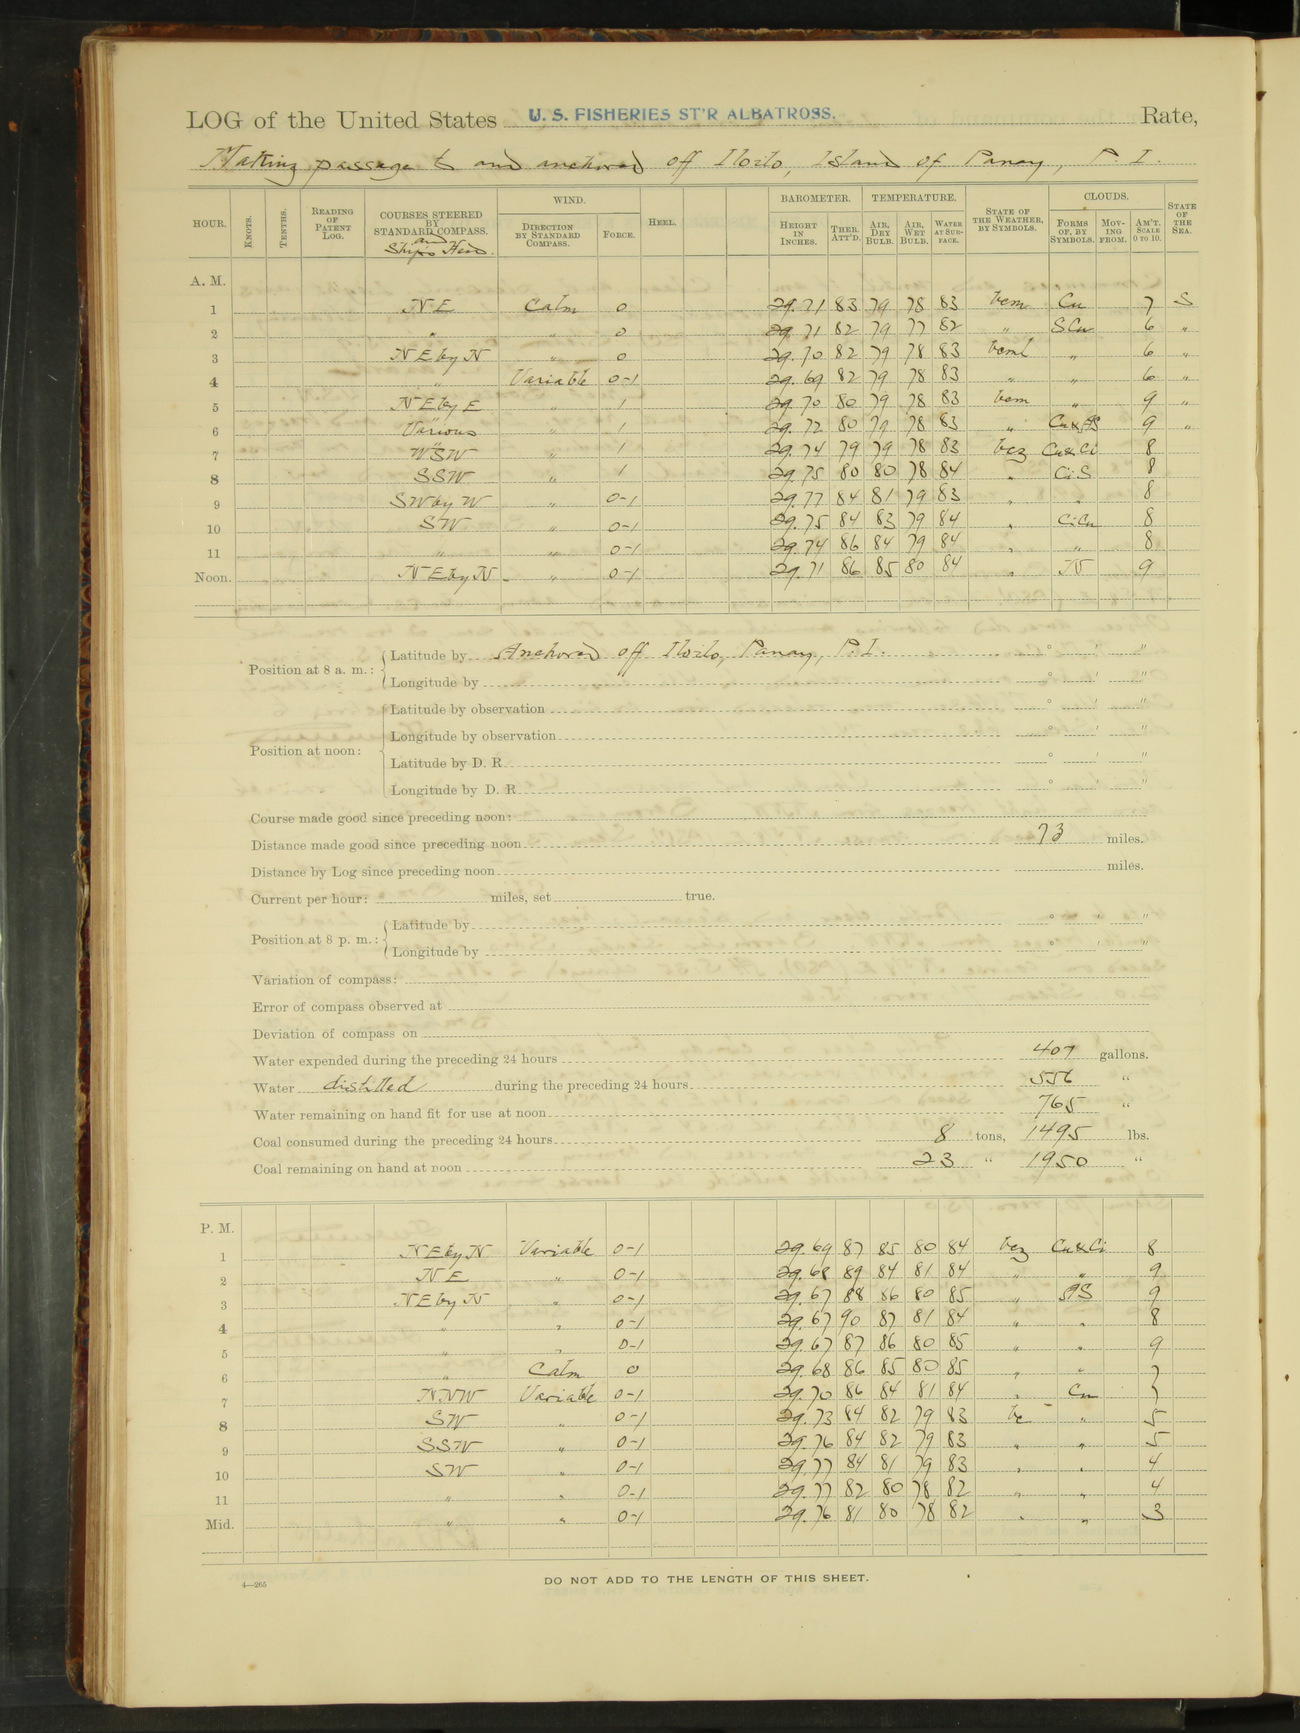 LOG of the United States U. S. FISHERIES ST'R ALBATROSS. Rate,
Making passage to and anchored off Iloilo, Island of Panay, P. I.
HOUR. KNOTS. TENTHS. READING OF PATENT LOG. COURSES STEERED BY STANDARD COMPASS. and Ship's Head. WIND. DIRECTION BY STANDARD COMPASS. FORCE. HEEL. BAROMETER. HEIGHT IN INCHES. THER. ATT'D. TEMPERATURE. AIR, DRY BULB. AIR, WET BULB. WATER AT SURFACE. STATE OF THE WEATHER, BY SYMBOLS. CLOUDS. FORMS OF, BY SYMBOLS. MOVING FROM. AM'T. SCALE 0 TO 10. STATE OF THE SEA.
A. M.
1 NE Calm 0 29.71 83 79 78 83 bcm Cu 7 S
2 " " 0 29.71 82 79 77 82 " SCu 6 "
3 NE by N " 0 29.70 82 79 78 83 bcml " 6 "
4 " Variable 0-1 29.69 82 79 78 83 " " 6 "
5 NE by E " 1 29.70 80 79 78 83 bcm " 9 "
6 Various " 1 29.72 80 79 78 83 " 9 "
7 WSW " 1 29.74 79 79 78 83 bcz Cu & Ci 8
8 SSW " 1 29.75 80 80 78 84 " CiS 8
9 SW by W " 0-1 29.77 84 81 79 83 " " 8
10 SW " 0-1 29.75 84 83 79 84 " CiCu 8
11 " " 0-1 29.74 86 84 79 84 " " 8
Noon. NE by N " 0-1 29.71 86 85 80 84 " N 9
Position at 8 a. m.: Latitude by Anchored off Iloilo, Panay, P. I. ° ' "
Longitude by ° ' "
Position at noon: Latitude by observation ° ' "
Longitude by observation ° ' "
Latitude by D. R. ° ' "
Longitude by D. R. ° ' "
Course made good since preceding noon:
Distance made good since preceding noon 73 miles.
Distance by Log since preceding noon miles.
Current per hour: miles, set true.
Position at 8 p. m.: Latitude by ° ' "
Longitude by ° ' "
Variation of compass:
Error of compass observed at
Deviation of compass on
Water expended during the preceding 24 hours 407 gallons.
Water distilled during the preceding 24 hours 556 "
Water remaining on hand fit for use at noon 765 "
Coal consumed during the preceding 24 hours 8 tons, 1495 lbs.
Coal remaining on hand at noon 23 " 1950 "
P. M.
1 NE by N Variable 0-1 29.69 87 85 80 84 bcz Cu & Ci 8
2 NE " 0-1 29.68 89 84 81 84 " " 9
3 NE by N " 0-1 29.67 88 86 80 85 " 9
4 " " 0-1 29.67 90 87 81 84 " " 8
5 " " 0-1 29.67 87 86 80 85 " " 9
6 " Calm 0 29.68 86 85 80 85 " " 7
7 NNW Variable 0-1 29.70 86 84 81 84 " Cu 7
8 SW " 0-1 29.73 84 82 79 83 bc " 5
9 SSW " 0-1 29.76 84 82 79 83 " " 5
10 SW " 0-1 29.77 84 81 79 83 " " 4
11 " " 0-1 29.77 82 80 78 82 " " 4
Mid. " " 0-1 29.76 81 80 78 82 " " 3
4—265
DO NOT ADD TO THE LENGTH OF THIS SHEET.